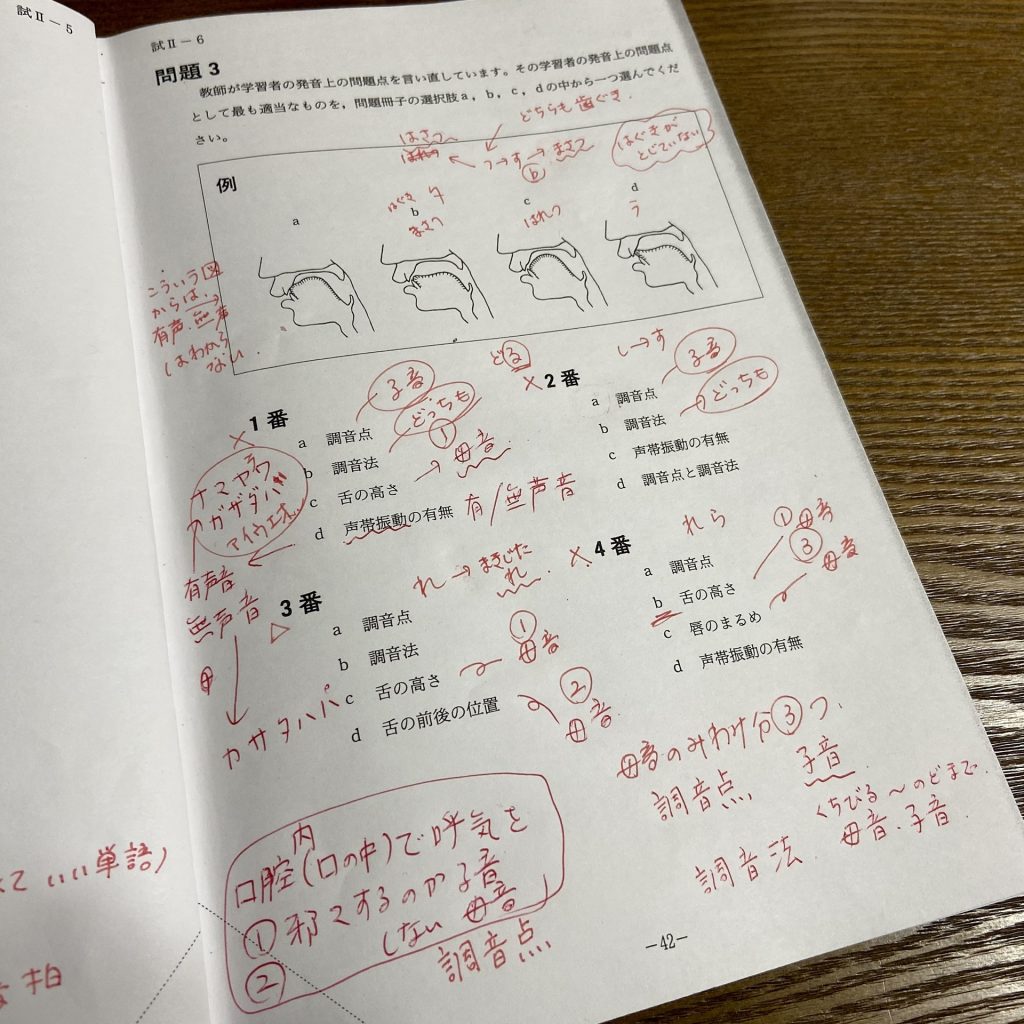 試Ⅱ－5
試Ⅱ－6
問題 3
教師が学習者の発音上の問題点を言い直しています。その学習者の発音上の問題点
として最も適当なものを，問題冊子の選択肢 a，b，c，d の中から一つ選んでくだ
さい。
どちらも歯ぐき
はさつ
つ→す→まさつ
b
はぐきが
とじていない
例
a
はぐき
b
まさつ
c
はれつ
d
う
こういう図
からは、
有声・無声
はわから
ない。
1番
子音
a 調音点
どっちも
b 調音法
①
母音
c 舌の高さ
d 声帯振動の有無
有/無声音
ナマヤラワ
ガザダバ
アイウエオ
有声音
無声音
カサタハパ
どる
2番
し→す
子音
a 調音点
どっちも
b 調音法
c 声帯振動の有無
d 調音点と調音法
3番
れ→まきじた
れ
a 調音点
b 調音法
①
母音
c 舌の高さ
②
母音
d 舌の前後の位置
4番
れら
a 調音点
①母音
b 舌の高さ
③
母音
c 唇のまるめ
d 声帯振動の有無
母音のみわけ分③つ、
調音点 子音
くちびる～のどまで
調音法 母音・子音
口腔内(口の中)で呼気を
①邪マするのが子音
しない 母音
②
調音点
いい単語)
拍
－42－